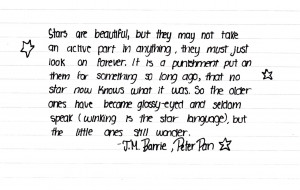 Stars are beautiful, but they may not take
an active part in anything, they must just
look on forever. It is a punishment put on
them for something so long ago, that no
star now knows what it was. So the older
ones have become glassy-eyed and seldom
speak (winking is the star language), but
the little ones still wonder.
-J.M. Barrie, Peter Pan